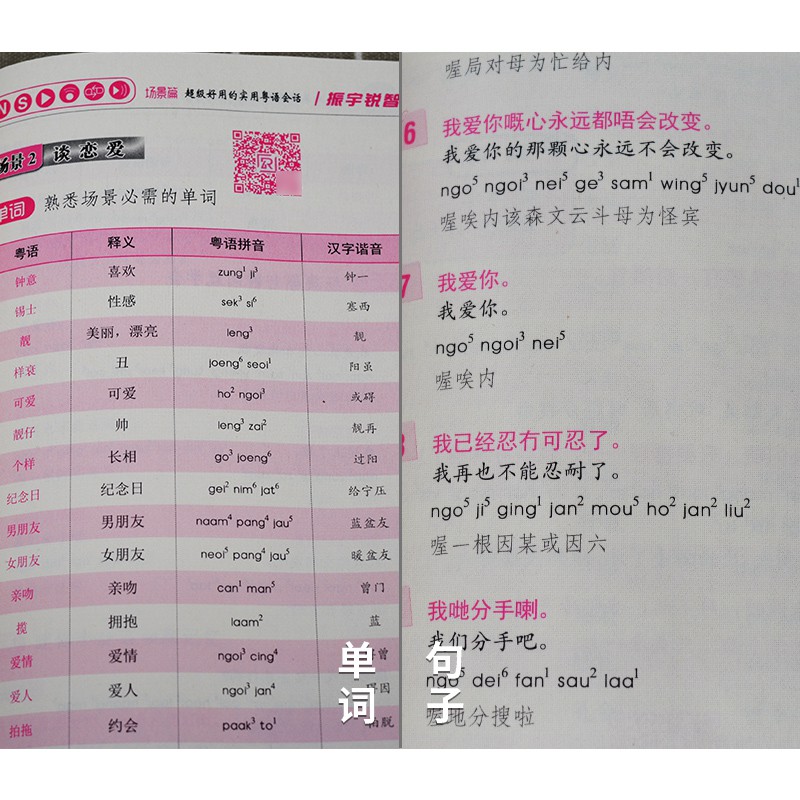 场景篇 超级好用的实用粤语会话 振宇锐智
场景2 谈恋爱
单词 熟悉场景必需的单词
粤语 释义 粤语拼音 汉字谐音
钟意 喜欢 zung¹ ji³ 钟一
锡士 性感 sek³ si⁶ 塞西
靓 美丽，漂亮 leng³ 靓
样衰 丑 joeng⁶ seoi¹ 阳虽
可爱 可爱 ho² ngoi³ 或碍
靓仔 帅 leng³ zai² 靓再
个样 长相 go³ joeng⁶ 过阳
纪念日 纪念日 gei² nim⁶ jat⁶ 给宁压
男朋友 男朋友 naam⁴ pang⁴ jau⁵ 蓝盆友
女朋友 女朋友 neoi⁵ pang⁴ jau⁵ 暖盆友
亲吻 亲吻 can¹ man⁵ 曾门
揽 拥抱 laam² 蓝
爱情 爱情 ngoi³ cing⁴ 曾
爱人 爱人 ngoi³ jan⁴ 因
拍拖 约会 paak³ to¹ 拍脱
单词
喔局对母为忙给内
6 我爱你嘅心永远都唔会改变。
我爱你的那颗心永远不会改变。
ngo⁵ ngoi³ nei⁵ ge³ sam¹ wing⁵ jyun⁵ dou¹
喔唉内该森文云斗母为怪宾
7 我爱你。
我爱你。
ngo⁵ ngoi³ nei⁵
喔唉内
我已经忍冇可忍了。
我再也不能忍耐了。
ngo⁵ ji⁵ ging¹ jan² mou⁵ ho² jan² liu²
喔一根因某或因六
我哋分手喇。
我们分手吧。
ngo⁵ dei⁶ fan¹ sau² laa¹
喔地分搜啦
句子